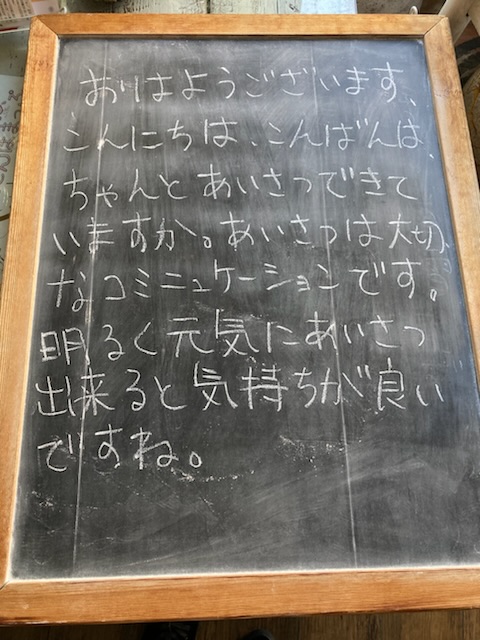 おはようございます、
こんにちは、こんばんは、
ちゃんとあいさつできて
いますか。あいさつは大切
なコミニュケーションです。
明るく元気にあいさつ
出来ると気持ちが良い
ですね。